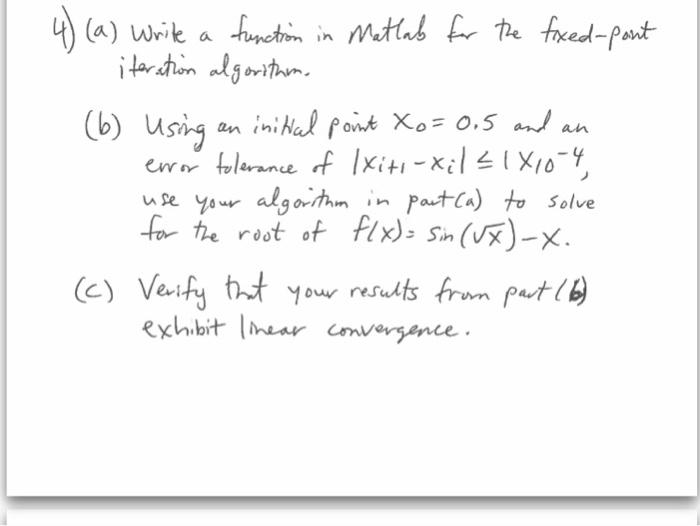 4) (a) Write a function in Matlab for the fixed-point
iteration algorithm.
(b) Using an initial point X₀ = 0.5 and an
error tolerance of |Xi+1 - Xi| ≤ 1 X10⁻⁴,
use your algorithm in part (a) to solve
for the root of f(x) = Sin (√x) - X.
(c) Verify that your results from part (b)
exhibit linear convergence.